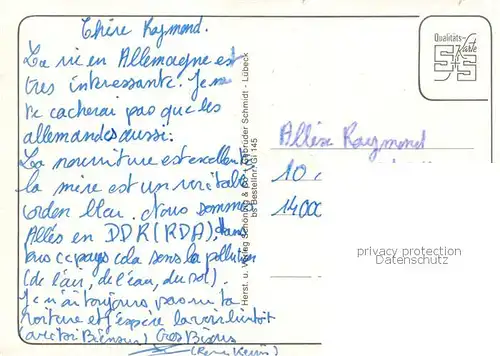 Chère Raymond.
La vie en Allemagne est
tres interessante. Je ne
te cacherai pas que les
allemandes aussi.
La nourriture est excellente
la mère est un veritable
cordon bleu. Nous sommes
Allés en DDR (RDA), dans
tous ce pays cela sens la pollution
(de l'air, de l'eau, du sol).
Je n'ai toujours pas vu ta
voiture et j'espère la voir bientôt
(avec toi Biensur) Gros Bisous
Herst. u. Verlag Schöning & Co + Gebrüder Schmidt - Lübeck
bs Bestellnr. Gl 145
Qualitäts-
Karte
S+S
Allèse Raymond
10,
1400
privacy protection
Datenschutz